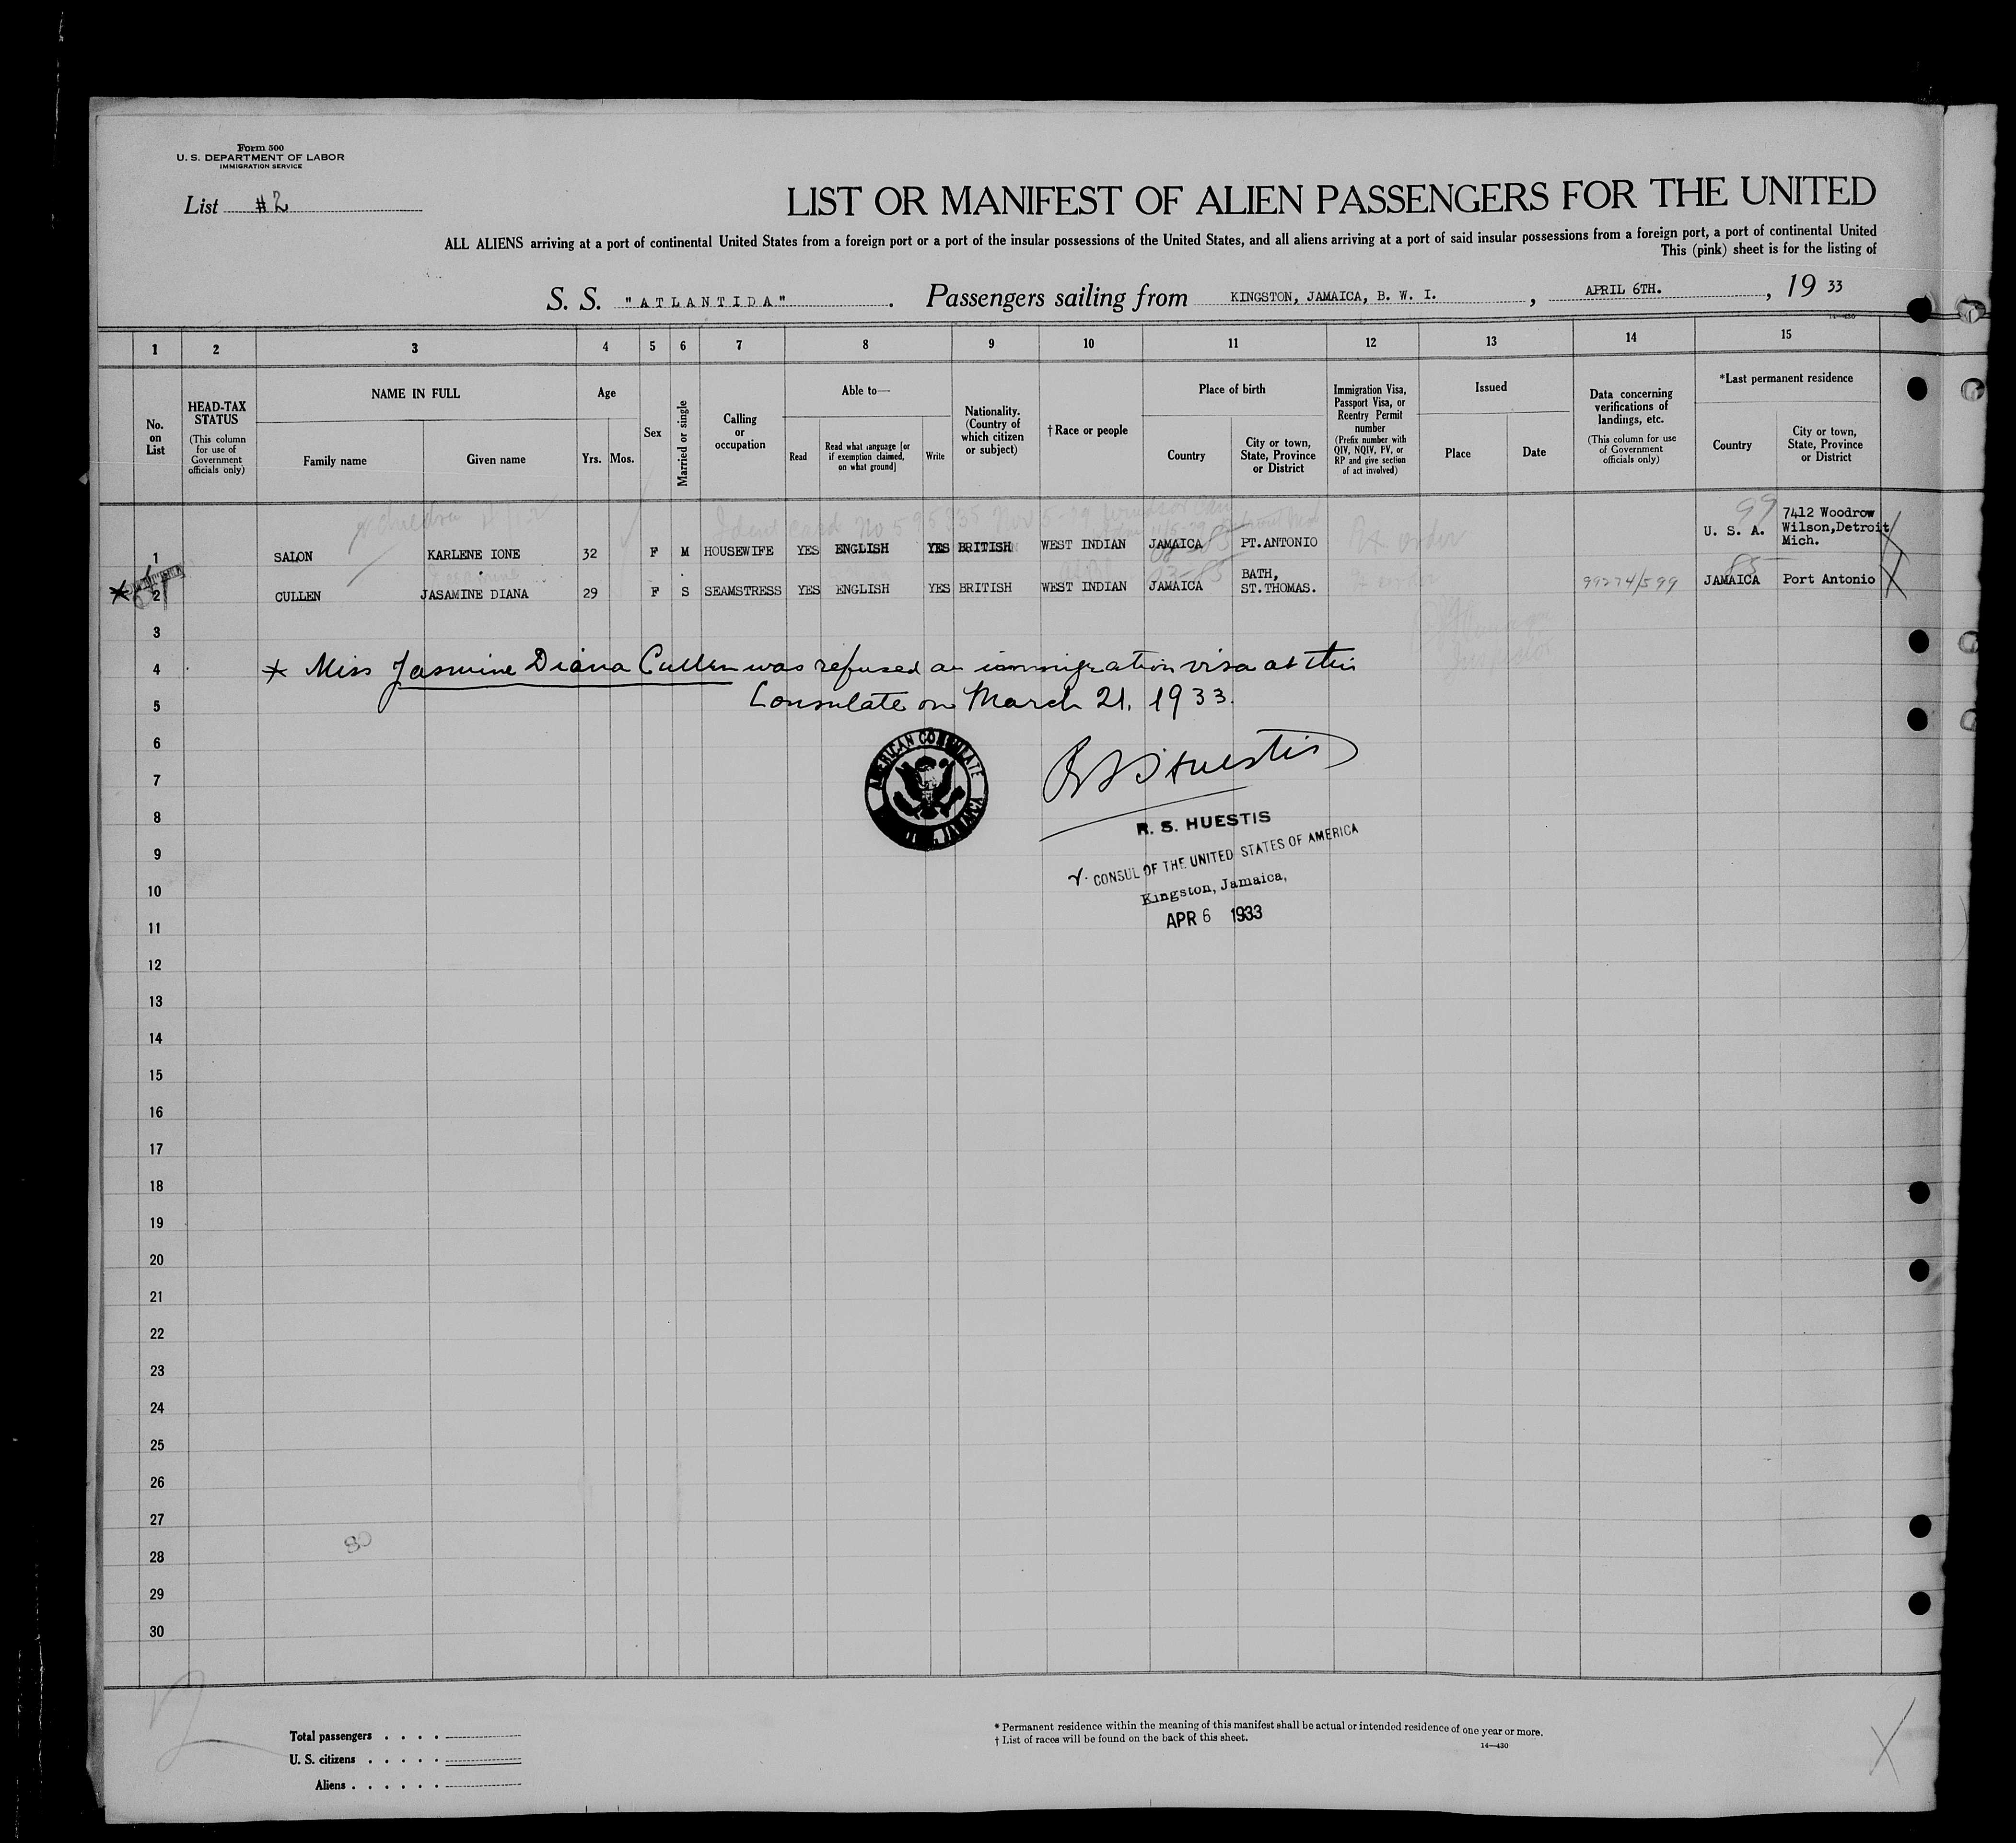 Form 500
U. S. DEPARTMENT OF LABOR
IMMIGRATION SERVICE
List #2
LIST OR MANIFEST OF ALIEN PASSENGERS FOR THE UNITED
ALL ALIENS arriving at a port of continental United States from a foreign port or a port of the insular possessions of the United States, and all aliens arriving at a port of said insular possessions from a foreign port, a port of continental United
This (pink) sheet is for the listing of
S. S. "ATLANTIDA". Passengers sailing from KINGSTON, JAMAICA, B. W. I., APRIL 6TH., 19 33
14—430
1 2 3 4 5 6 7 8 9 10 11 12 13 14 15
No. on List
HEAD-TAX STATUS
(This column for use of Government officials only)
NAME IN FULL
Family name
Given name
Age
Yrs. Mos.
Sex
Married or single
Calling or occupation
Able to—
Read
Read what language [or if exemption claimed, on what ground]
Write
Nationality. (Country of which citizen or subject)
†Race or people
Place of birth
Country
City or town, State, Province or District
Immigration Visa, Passport Visa, or Reentry Permit number
(Prefix number with QIV, NQIV, PV, or RP and give section of act involved)
Issued
Place
Date
Data concerning verifications of landings, etc.
(This column for use of Government officials only)
*Last permanent residence
Country
City or town, State, Province or District
Ident card No 595335 Nov 5-29
99
Pt order
1 SALON KARLENE IONE 32 F M HOUSEWIFE YES ENGLISH YES BRITISH WEST INDIAN JAMAICA PT.ANTONIO U. S. A. 7412 Woodrow Wilson,Detroit Mich.
85
* 2 CULLEN JASAMINE DIANA 29 F S SEAMSTRESS YES ENGLISH YES BRITISH WEST INDIAN JAMAICA BATH, ST.THOMAS. 99274/599 JAMAICA Port Antonio
3
4 * Miss Jasmine Diana Cullen was refused an immigration visa at this
5 Consulate on March 21, 1933.
6
AMERICAN CONSULATE JAMAICA
R S Huestis
7
8
R. S. HUESTIS
9
V. CONSUL OF THE UNITED STATES OF AMERICA
10
Kingston, Jamaica,
11
APR 6 1933
12
13
14
15
16
17
18
19
20
21
22
23
24
25
26
27
80
28
29
30
Total passengers . . . .
U. S. citizens . . . . .
Aliens . . . . . .
* Permanent residence within the meaning of this manifest shall be actual or intended residence of one year or more.
† List of races will be found on the back of this sheet.
14—430